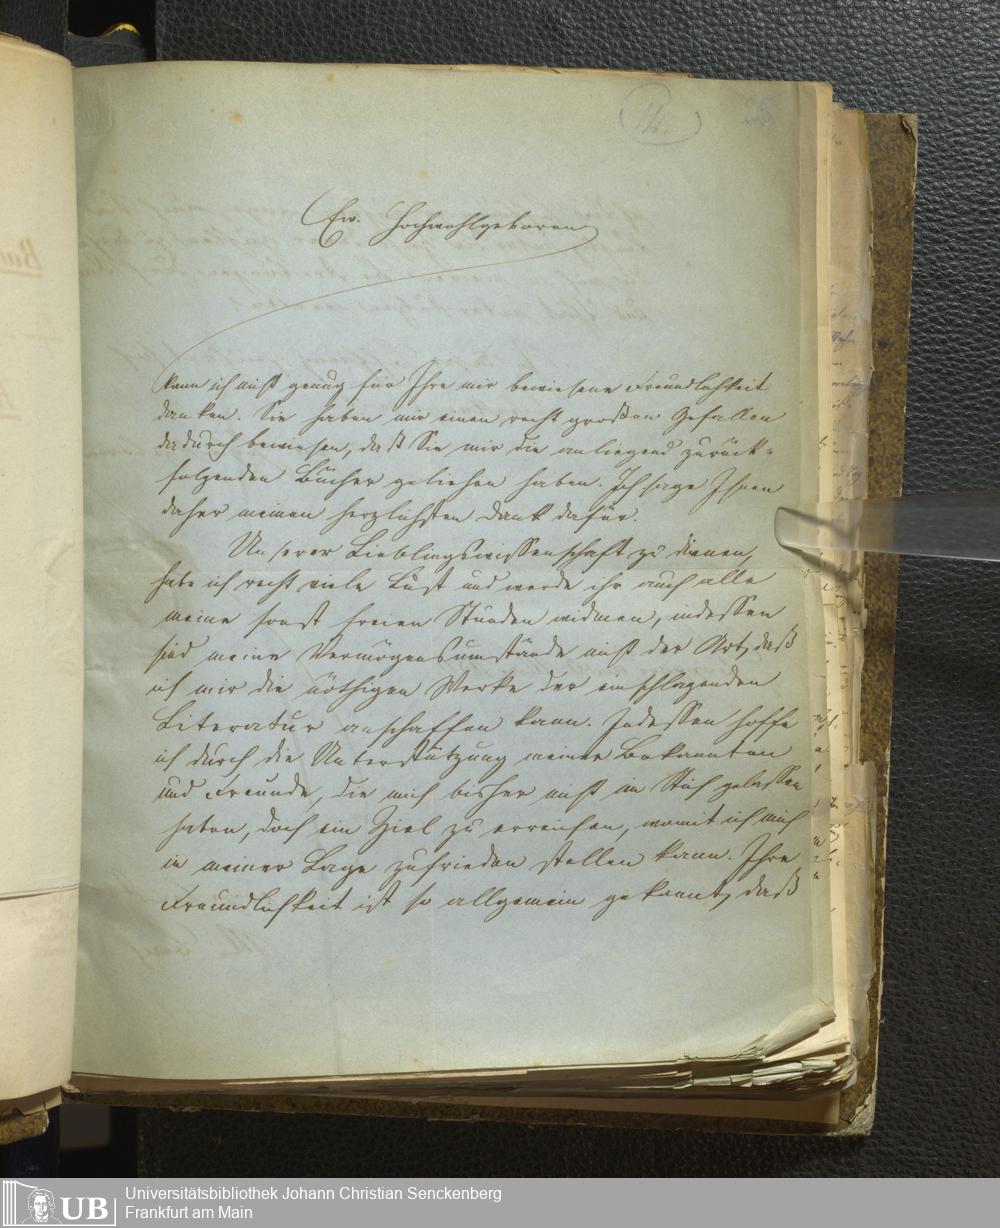 14.
Ew. Hochwohlgeboren
kann ich nicht genug für Ihre mir bewiesene Freundlichkeit
danken. Sie haben mir einen recht großen Gefallen
dadurch bewiesen, daß Sie mir die anliegend zurück-
folgenden Bücher geliehen haben. Ich sage Ihnen
daher meinen herzlichsten Dank dafür.
Unserer Lieblingswissenschaft zu dienen,
habe ich recht viele Lust und werde ihr auch alle
meine sonst freien Stunden widmen, indessen
sind meine Vermögensumstände nicht der Art, daß
ich mir die nöthigen Werke der einschlagenden
Literatur anschaffen kann. Indessen hoffe
ich durch die Unterstützung meiner Bekannten
und Freunde, die mich bisher nicht im Stich gelassen
haben, doch ein Ziel zu erreichen, womit ich mich
in meiner Lage zufrieden stellen kann. Ihre
Freundlichkeit ist so allgemein gekannt, daß
UB
Universitätsbibliothek Johann Christian Senckenberg
Frankfurt am Main